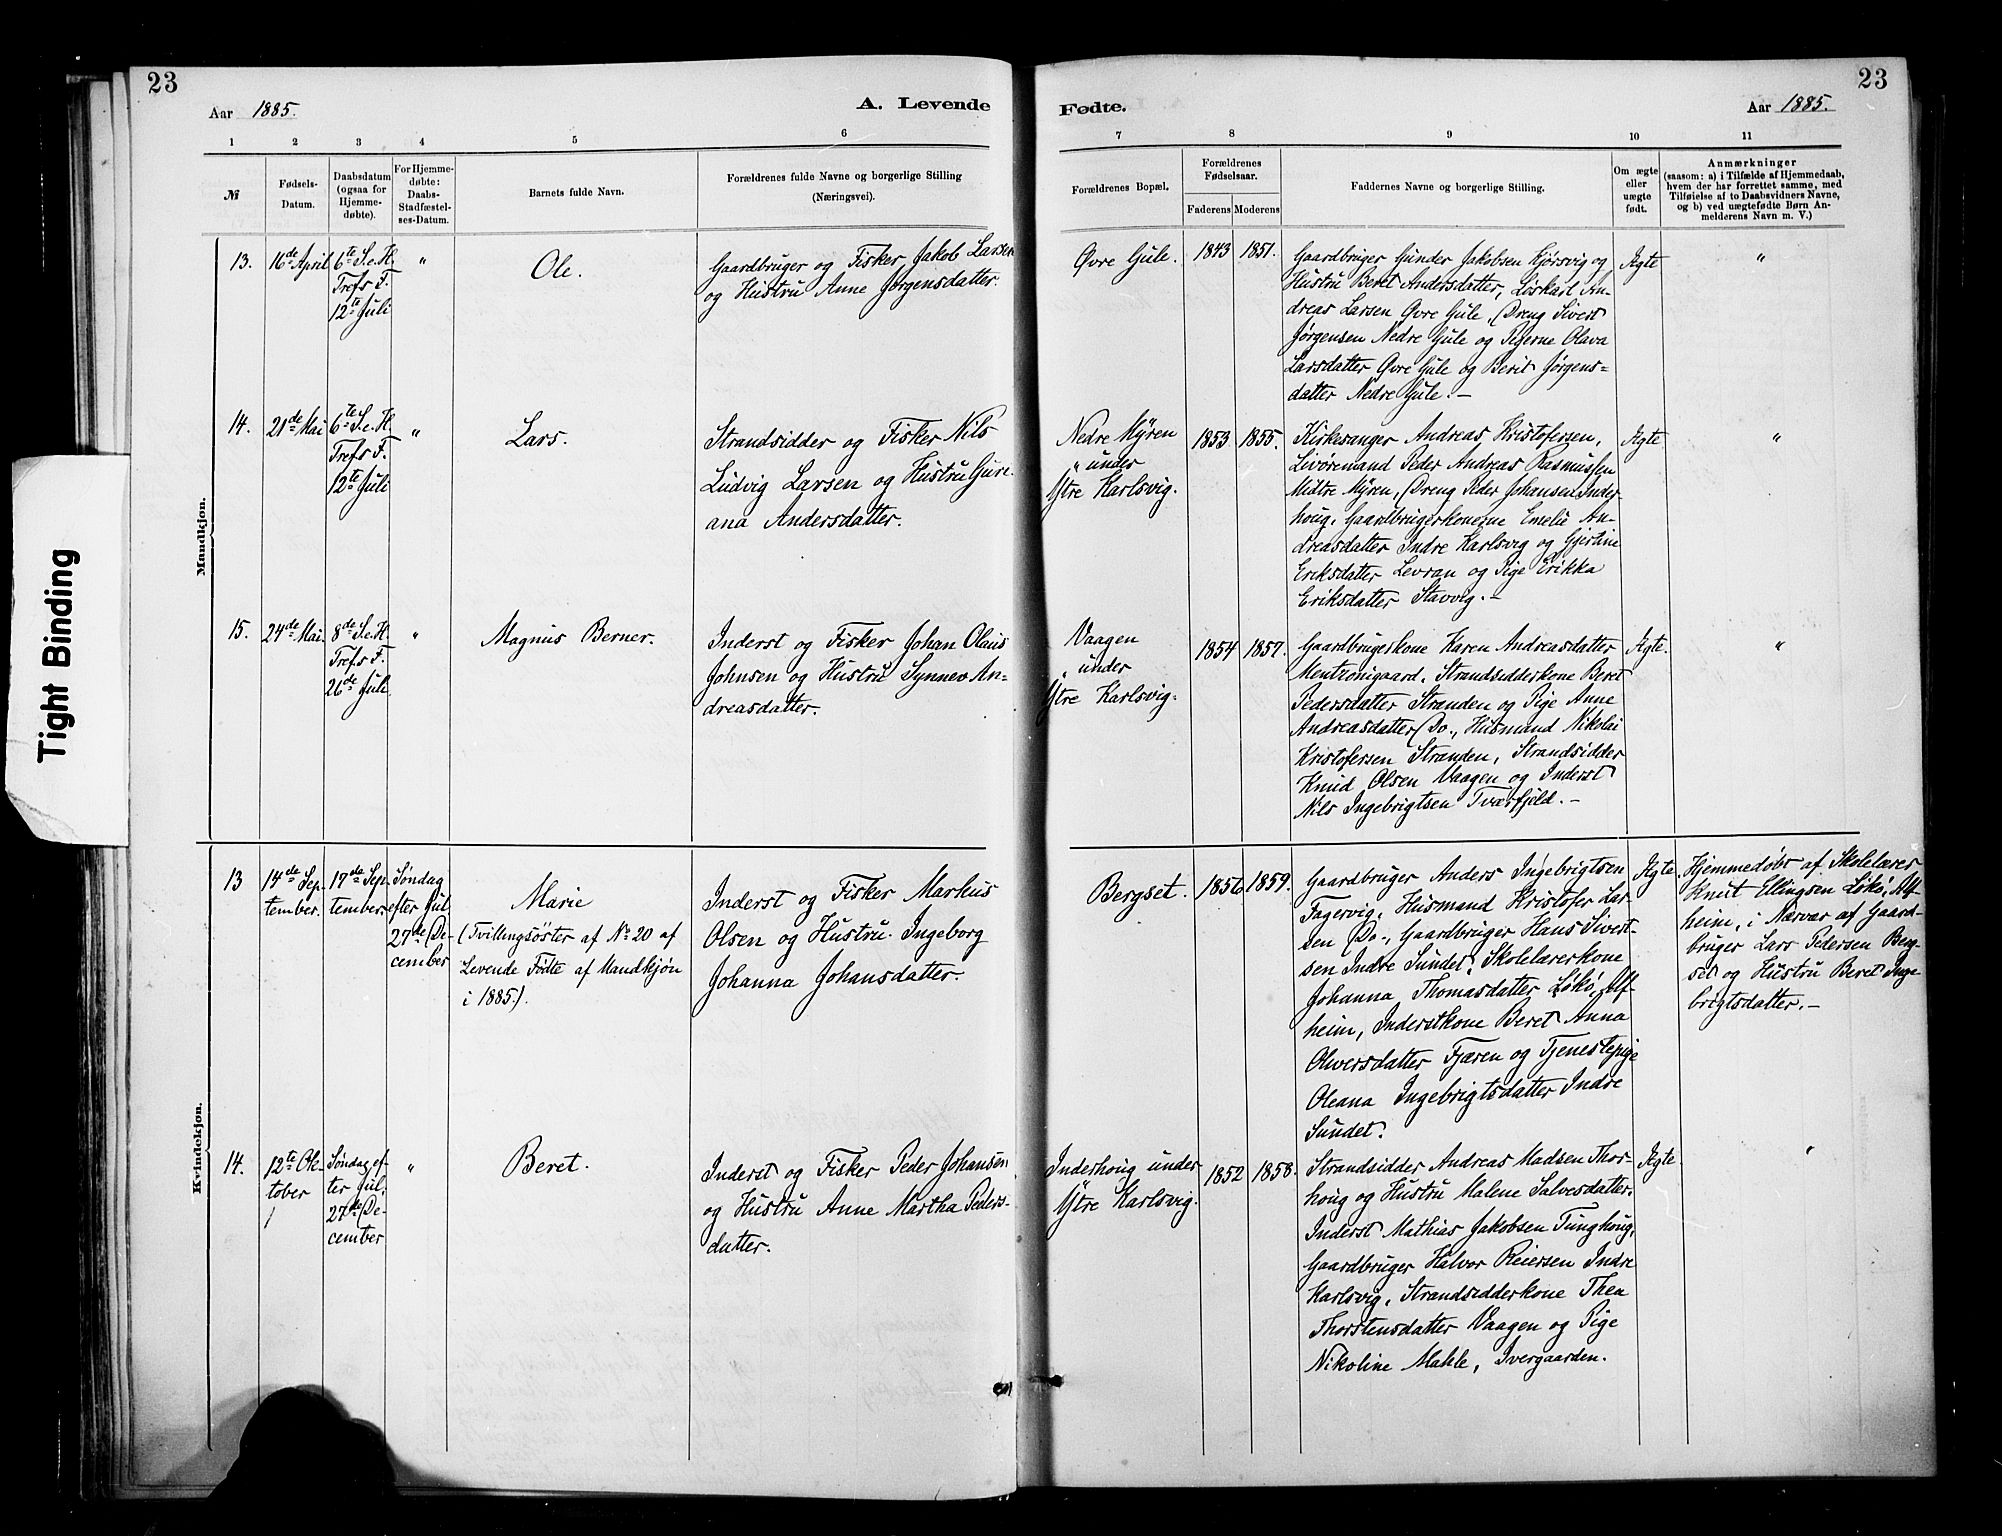 23
Aar 1885.
A. Levende
1 2 3 4 5 6
№
Fødsels-
Datum.
Daabsdatum
(ogsaa for
Hjemme-
døbte).
For Hjemme-
døbte:
Daabs-
Stadfæstel-
ses-Datum.
Barnets fulde Navn.
Forældrenes fulde Navne og borgerlige Stilling
(Næringsvei).
Mandkjøn.
13.
16de April
6te S. e. H.
Trefs F.
12te Juli
"
Ole.
Gaardbruger og Fisker Jakob Larsen
og Hustru Anne Jørgensdatter.
14.
21de Mai
6te S. e. H.
Trefs F.
12te Juli
"
Lars.
Strandsidder og Fisker Nils
Ludvig Larsen og Hustru Guri-
ana Andersdatter.
15.
24de Mai.
8de S. e. H.
Trefs F.
26de Juli
"
Magnus Berner.
Inderst og Fisker Johan Olaus
Johnsen og Hustru Synnev An-
dreasdatter.
Kvindekjøn.
13
14de Sep-
tember.
17de Sep-
tember.
Søndag
efter Jul.
27de De-
cember
Marie
(Tvillingsøster af No 20 af
Levende Fødte af Mandkjøn
i 1885).
Inderst og Fisker Markus
Olsen og Hustru Ingeborg
Johanna Johansdatter.
14.
12te Ok-
tober
Søndag ef-
ter Jul,
27de De-
cember
"
Beret.
Inderst og Fisker Peder Johansen
og Hustru Anne Martha Peders-
datter.
Tight Binding
23
Fødte.
Aar 1885.
7 8 9 10 11
Forældrenes Bopæl.
Forældrenes
Fødselsaar.
Faderens
Moderens
Faddernes Navne og borgerlige Stilling.
Om ægte
eller
uægte
født.
Anmærkninger
(saasom: a) i Tilfælde af Hjemmedaab,
hvem der har forrettet samme, med
Tilføielse af to Daabsvidners Navne,
og b) ved uægtefødte Børn An-
melderens Navn m. V.)
Øvre Gule.
1843
1851.
Gaardbruger Gunder Jakobsen Kjørsvig og
Hustru Beret Andersdatter, Løskarl An-
dreas Larsen Øvre Gule, Dreng Sivert
Jørgensen Nedre Gule og Pigerne Olava
Larsdatter Øvre Gule og Berit Jørgens-
datter Nedre Gule. –
Ægte
"
Nedre Myren
under
Ytre Karlsvig.
1853
1855.
Kirkesanger Andreas Kristofersen,
Livøremand Peder Andreas Rasmussen
Midtre Myren, Dreng Peder Johansen Inder-
houg, Gaardbrugerkonerne Emelie An-
dreasdatter Indre Karlsvig og Gjertine
Eriksdatter Levran og Pige Erikka
Eriksdatter Stavvig. –
Ægte
"
Vaagen
under
Ytre Karlsvig.
1854
1857.
Gaardbrugerkone Karen Andreasdatter
Mentzonigaard, Strandsidderkone Beret
Pedersdatter Stranden og Pige Anne
Andreasdatter Do., Husmand Nikolai
Kristofersen Stranden, Strandsidder
Knud Olsen Vaagen og Inderst
Nils Ingebrigtsen Tværfjeld. –
Ægte.
"
Bergset.
1856
1859.
Gaardbruger Anders Ingebrigtsen
Fagervig, Husmand Kristofer Lar-
sen Do., Gaardbruger Hans Sivert-
sen Indre Sundet, Skolelærerkone
Johanna Thomasdatter Løkø, Alf-
heim, Inderstkone Beret Anna
Olversdatter Fjæren og Tjenestepige
Oleana Ingebrigtsdatter Indre
Sundet.
Ægte.
Hjemmedøbt af Skolelærer
Knut Ellingsen Løkø, Alf-
heim, i Nærvær af Gaard-
bruger Lars Pedersen Berg-
set og Hustru Beret Inge-
brigtsdatter. –
Inderhoug under
Ytre Karlsvig.
1852
1858.
Strandsidder Andreas Madsen Thor-
houg og Hustru Malene Salvesdatter,
Inderst Mathias Jakobsen Tunghoug,
Gaardbruger Halvor Reiersen Indre
Karlsvig, Strandsidderkone Thea
Thorstensdatter Vaagen og Pige
Nikoline Mahle, Ivergaarden.
Ægte.
"